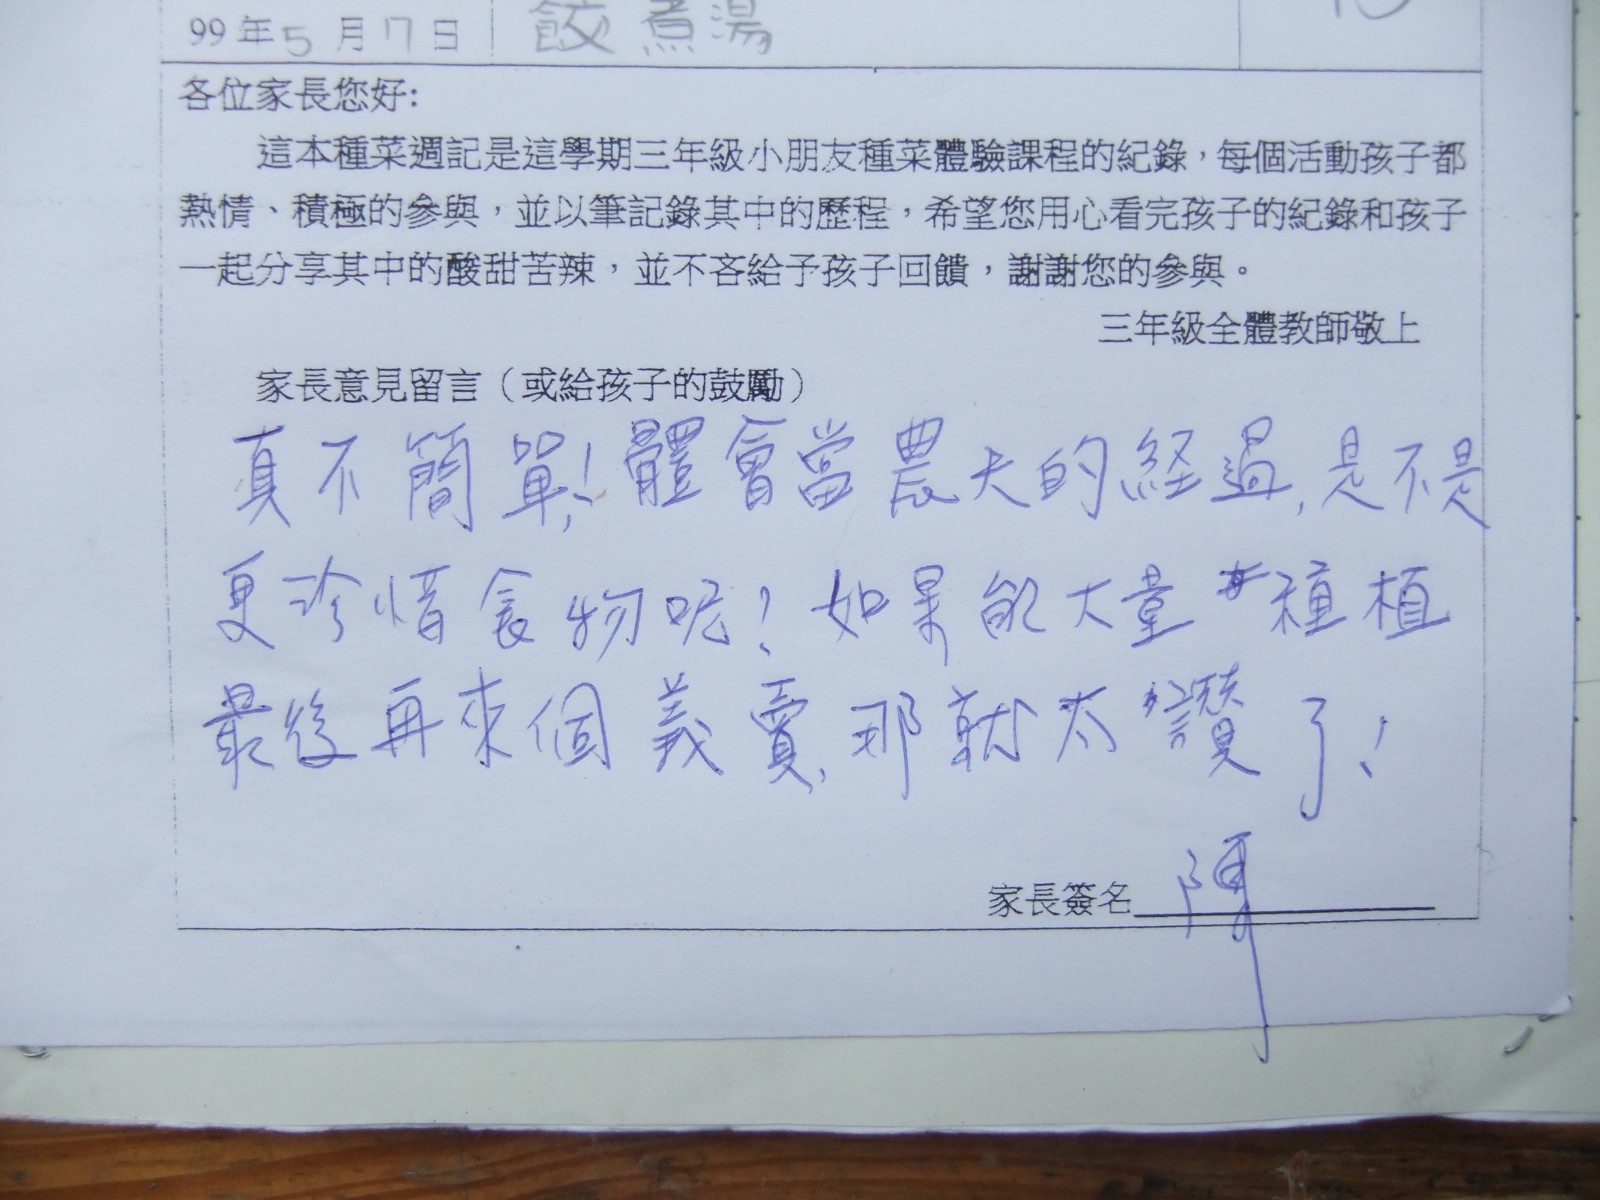 99年5月17日 餃煮湯
各位家長您好:
這本種菜週記是這學期三年級小朋友種菜體驗課程的紀錄，每個活動孩子都
熱情、積極的參與，並以筆記錄其中的歷程，希望您用心看完孩子的紀錄和孩子
一起分享其中的酸甜苦辣，並不吝給予孩子回饋，謝謝您的參與。
三年級全體教師敬上
家長意見留言（或給孩子的鼓勵）
真不簡單！體會當農夫的経過，是不是
更珍惜食物呢？如果能大量種植
最後再來個義賣，那就太讚了！
家長簽名 陳